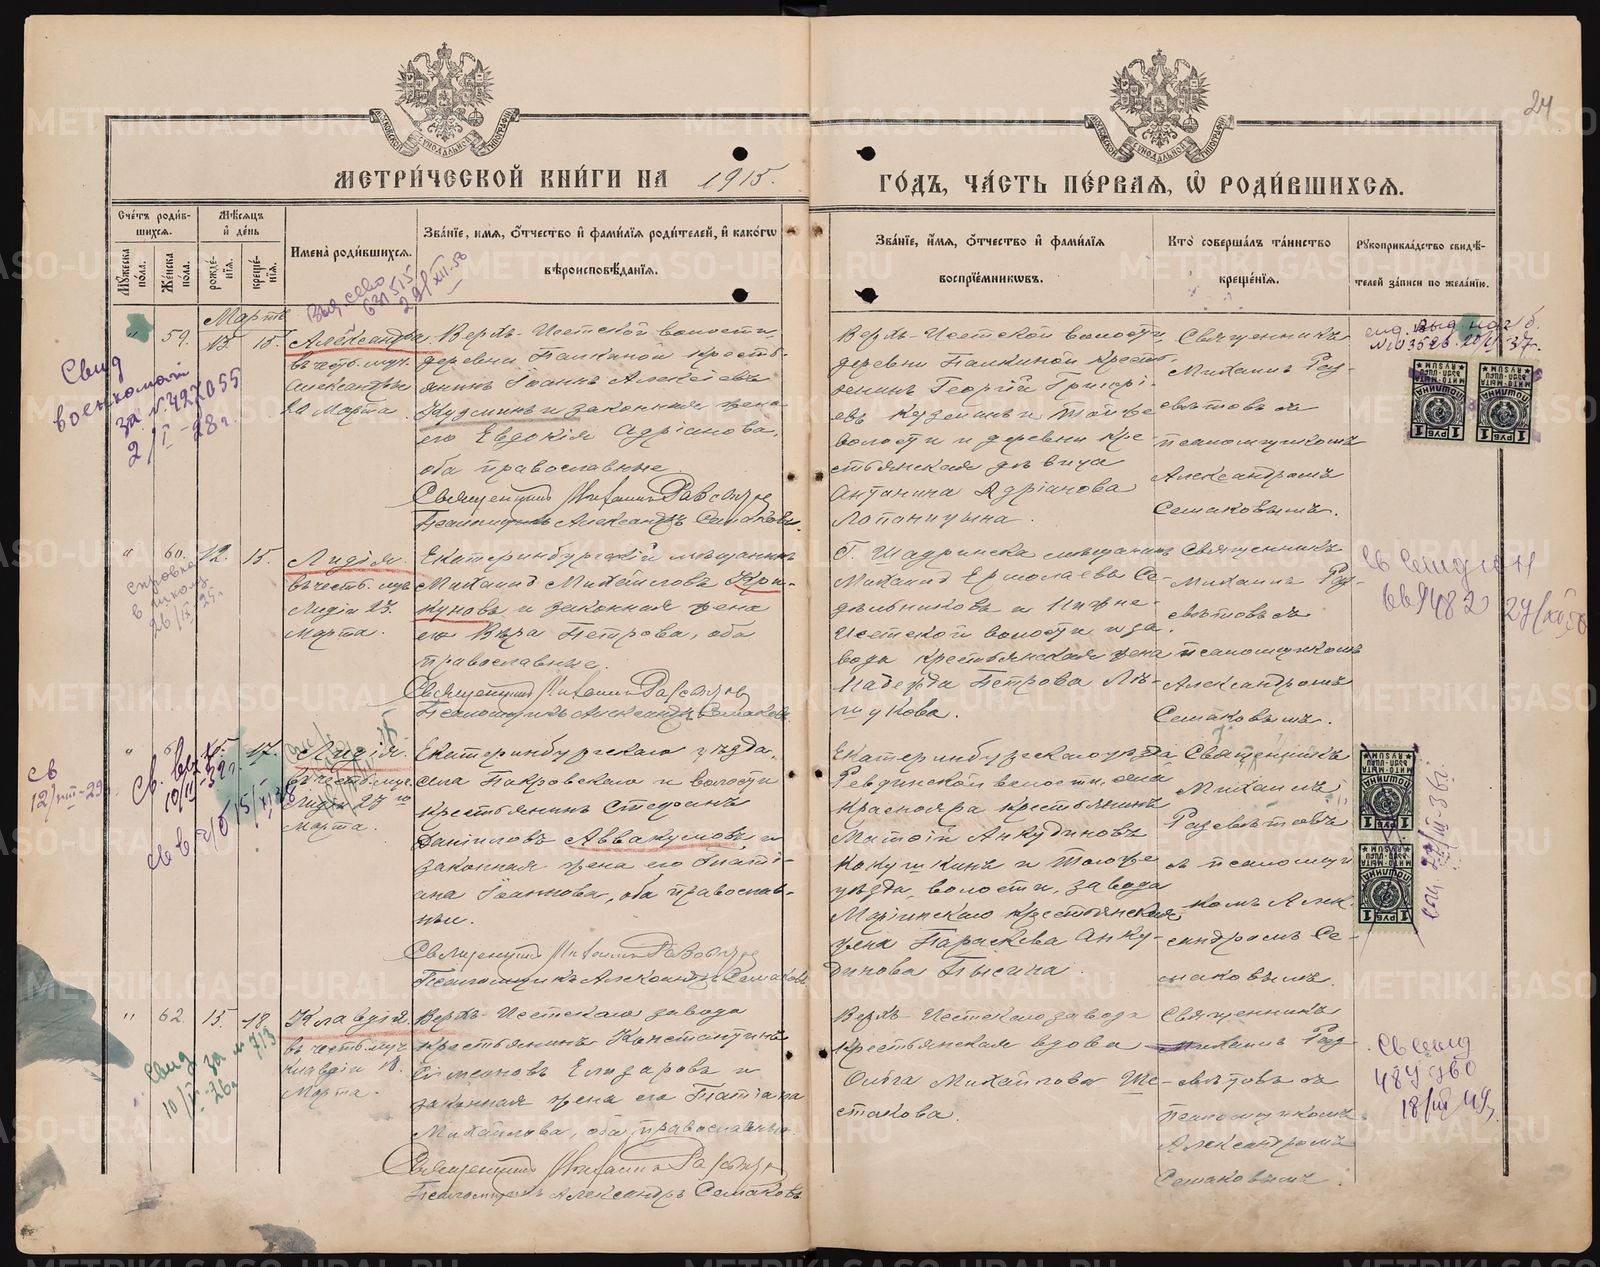 24
МЕТРИ́ЧЕСКОЙ КНИ́ГИ НА 1915.
ГО́ДЪ, ЧА́СТЬ ПЕ́РВАЯ, Ѡ҆ РОДИ́ВШИХСЯ.
Сче́тъ роди́в-
шихся.
Му́жеска по́ла.
Же́нска по́ла.
Мѣ́сяцъ
и҆ де́нь
рожде́-
нїя.
креще́-
нїя.
И҆мена̀ роди́вшихся.
Зва́нїе, и҆́мя, ѻ҆́тчество и҆ фами́лїя роди́телей, и҆ како́гѡ
вѣроисповѣ́данїя.
Зва́нїе, и҆́мя, ѻ҆́тчество и҆ фами́лїя
воспрїе́мниковъ.
Кто̀ соверша́лъ та́инство
креще́нїя.
Рꙋкоприкла́дство свидѣ́-
телей за́писи по жела́нїю.
Мартъ
59. 13. 15.
Александра
въ честь муч.
Александры
20 Марта.
Верхъ-Исетской волости
деревни Палкиной кресть-
янинъ Іоаннъ Алексѣевъ
Кузминъ и законная жена
его Евдокія Адріанова,
оба православные.
Священникъ Михаилъ Разсвѣтовъ
Псаломщикъ Александръ Семаковъ.
Верхъ-Исетской волости
деревни Палкиной кресть-
янинъ Георгій Григорі-
евъ Кузминъ и тойже
волости и деревни кре-
стьянская дѣвица
Антонина Адріанова
Лопаницына.
Священникъ
Михаилъ Раз-
свѣтовъ съ
псаломщикомъ
Александромъ
Семаковымъ.
Свид
военкомат
за № 422055
2/I-28 г.
60. 12. 15.
Лидія
въ честь муч.
Лидіи 23
Марта.
Екатеринбургскій мѣщанинъ
Михаилъ Михайловъ Кри-
куновъ и законная жена
его Вѣра Петрова, оба
православные.
Священникъ Михаилъ Разсвѣтовъ
Псаломщикъ Александръ Семаковъ
Г. Шадринска мѣщанинъ
Михаилъ Ермолаевъ Се-
дѣльниковъ и Нижне-
Исетской волости и за-
вода крестьянская жена
Надежда Петрова
Священникъ
Михаилъ Раз-
свѣтовъ съ
псаломщикомъ
Александромъ
Семаковымъ.
669482
17.
Лидія
въ честь муч.
Лидіи 23 го
Марта.
Екатеринбургскаго уѣзда,
села Покровскаго и волости
крестьянинъ Стефанъ
Даниловъ Аввакумовъ и
законная жена его Тати-
ана Іоаннова, оба православ-
ные.
Священникъ Михаилъ Разсвѣтовъ
Псаломщикъ Александръ Семаковъ
Екатеринбургскаго уѣзда
Ревдинской волости, села
Краснояра крестьянинъ
Матѳій Анкудиновъ
Кокушкинъ и тогоже
уѣзда, волости, завода
Маріинскаго крестьянская
жена Параскева Анку-
динова Пысина.
Священникъ
Михаилъ
Разсвѣтовъ
съ псаломщи
комъ Алек-
сандромъ Се-
маковымъ.
62. 15. 18.
Клавдія.
въ честь муч.
Клавдіи 18
Марта.
Верхъ-Исетскаго завода
крестьянинъ Константинъ
Симеоновъ Елизаровъ и
законная жена его Татіана
Михайлова, оба православные.
Священникъ Михаилъ Разсвѣтовъ
Псаломщикъ Александръ Семаковъ
Верхъ-Исетскаго завода
крестьянская вдова
Ольга Михайлова Ше-
стакова.
Священникъ
Михаилъ Раз-
свѣтовъ съ
псаломщикомъ
Александромъ
Семаковымъ.
Свид за № 713